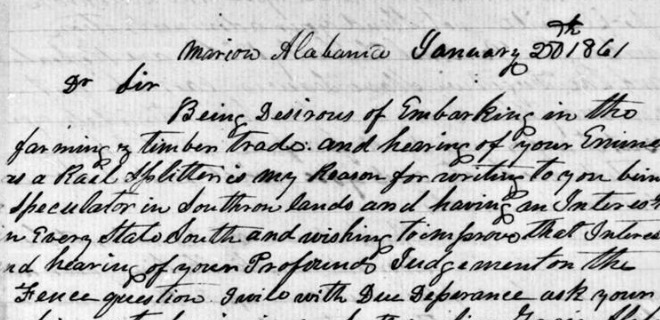 Marion Alabama January 20th 1861
Dr Sir
Being Desirous of Embarking in the
farming & timber trade. and hearing of your
as a Rail Splitter is my Reason for writing to you
Speculator in Southron lands and having an Interest
in Every State South and wishing to improve that Interes
nd hearing of your Profound Judgement on the
Fence question I will with Due Deferance ask your